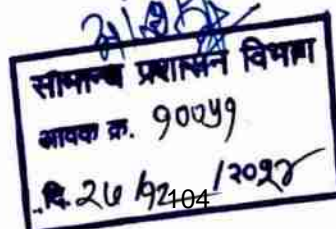 सामान्य प्रशासन विभाग
आवक क्र. १००५१
दि. २७ /१२ /२०२४
104